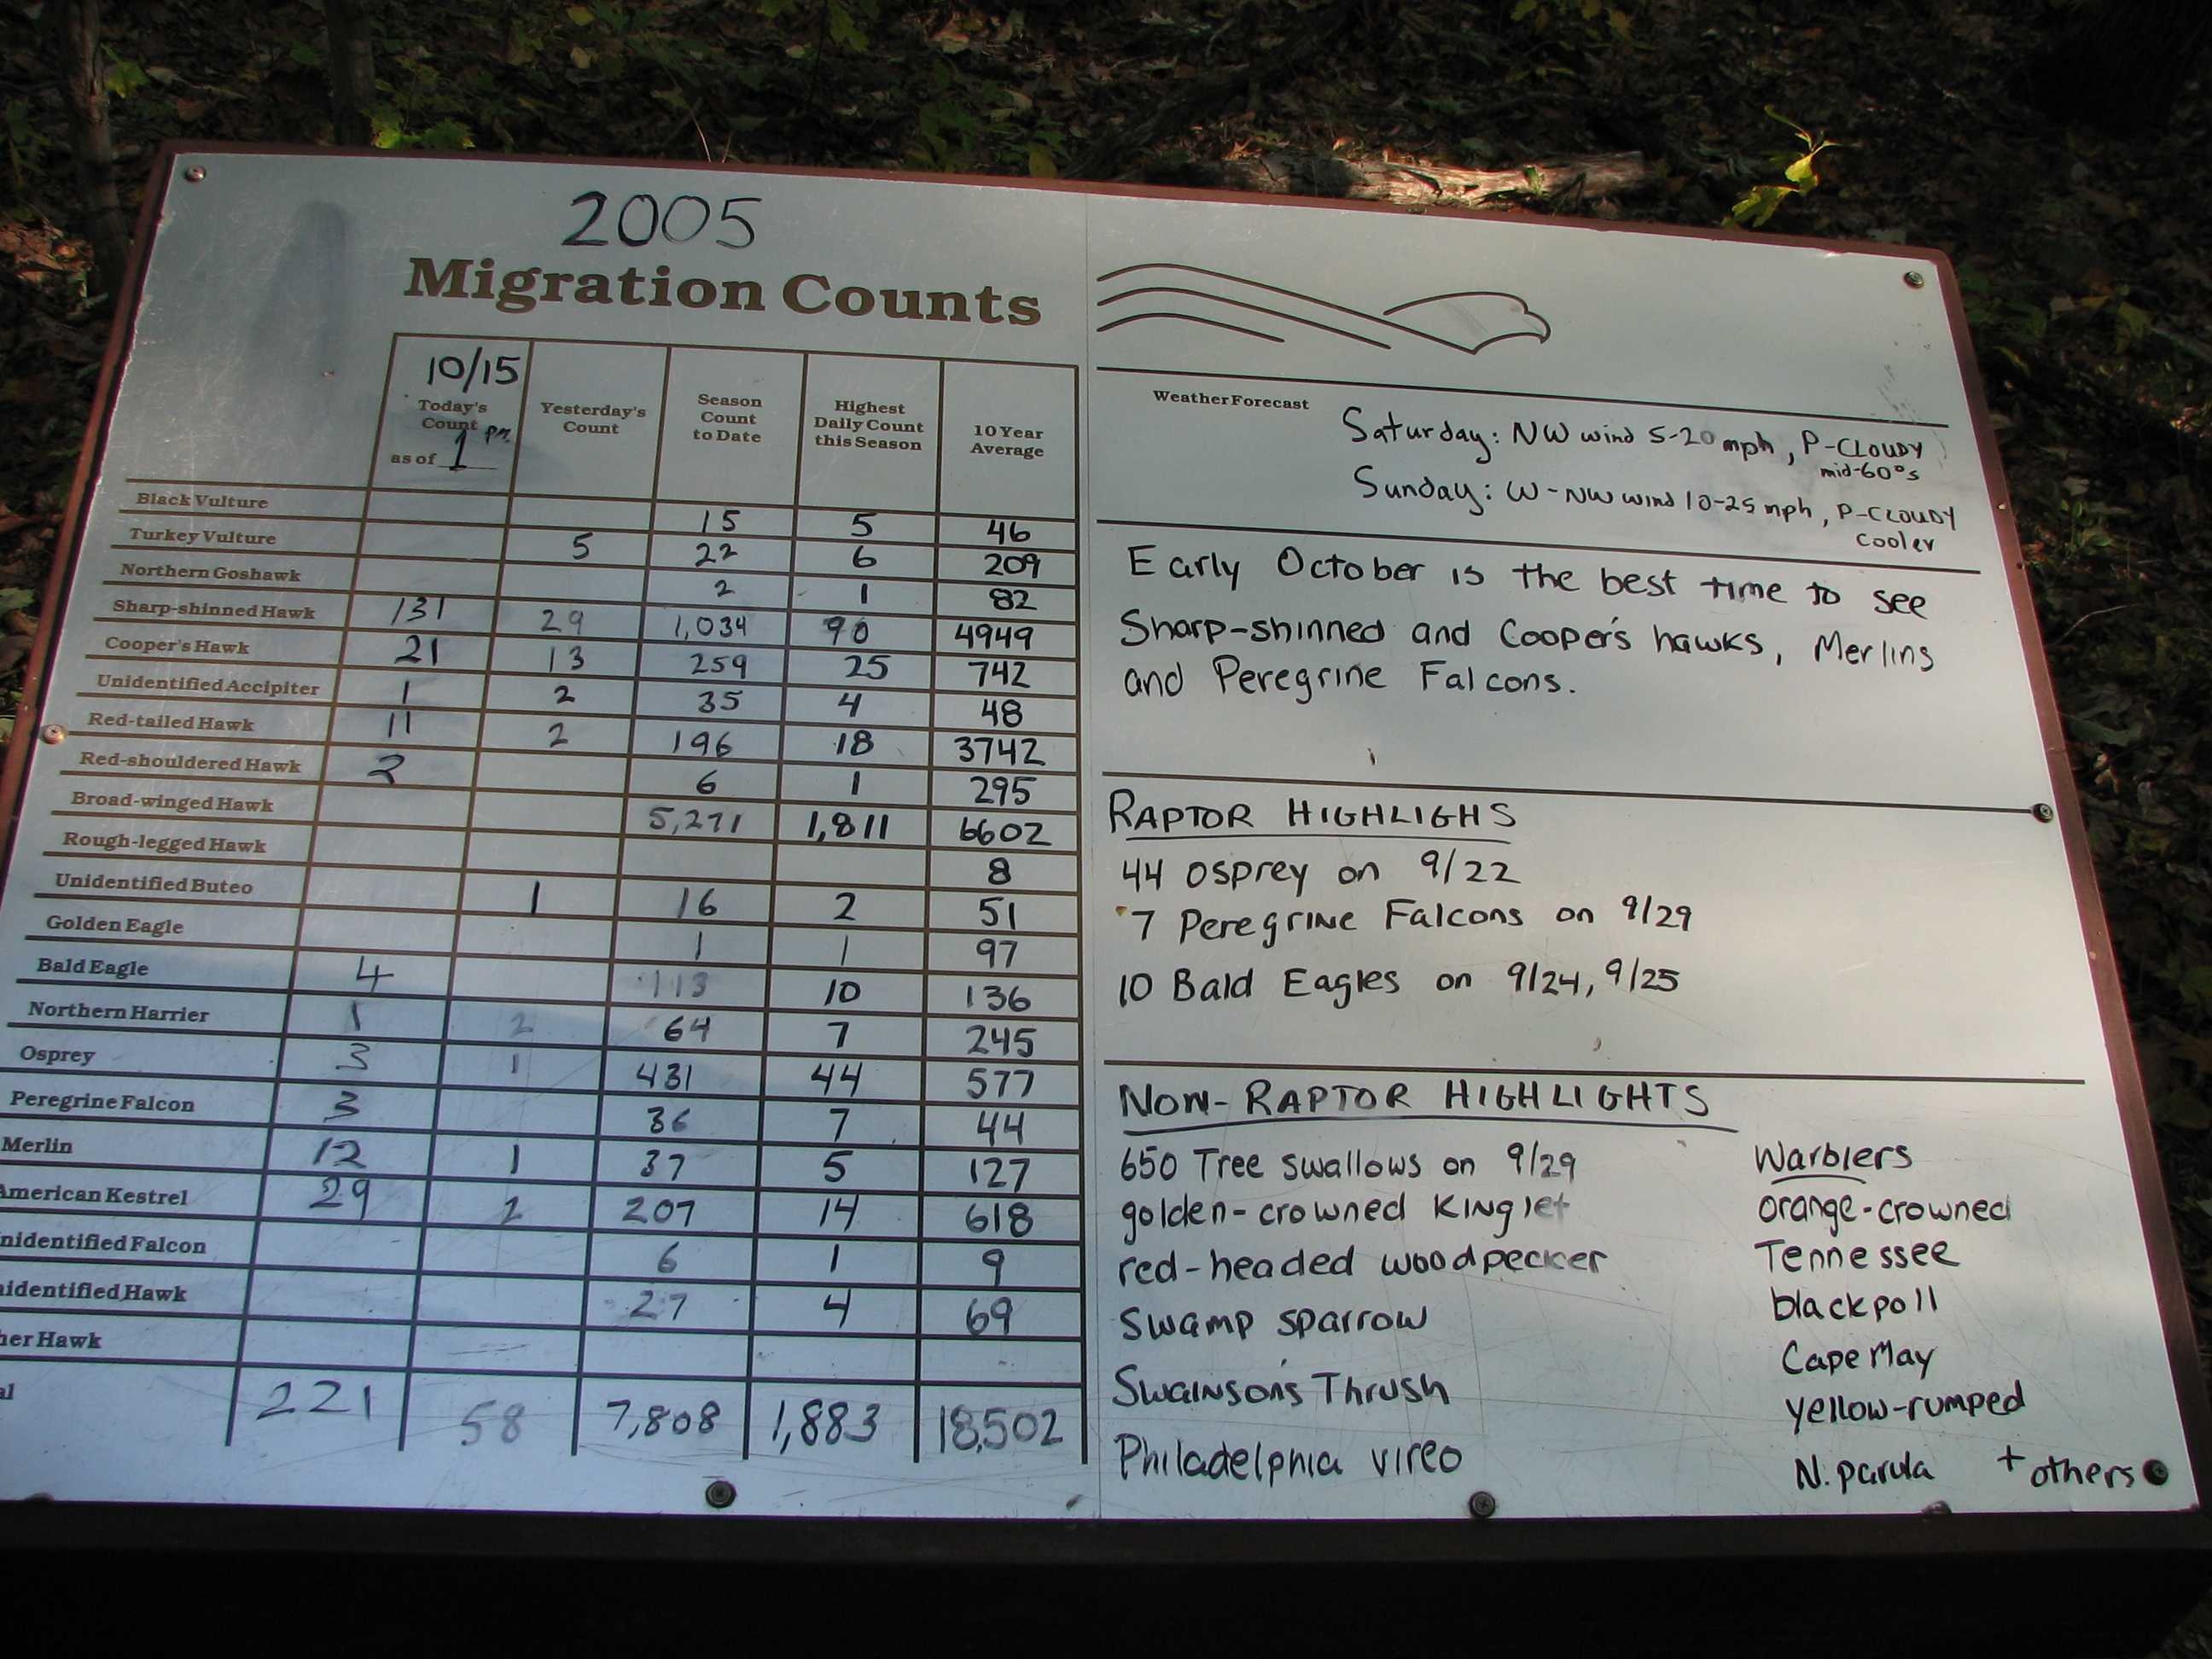 2005
Migration Counts
10/15
Today's Count as of 1 pm
Yesterday's Count
Season Count to Date
Highest Daily Count this Season
10 Year Average
Black Vulture 15 5 46
Turkey Vulture 5 22 6 209
Northern Goshawk 2 1 82
Sharp-shinned Hawk 131 29 1,034 90 4949
Cooper's Hawk 21 13 259 25 742
Unidentified Accipiter 1 2 35 4 48
Red-tailed Hawk 11 2 196 18 3742
Red-shouldered Hawk 2 6 1 295
Broad-winged Hawk 5,271 1,811 6602
Rough-legged Hawk 8
Unidentified Buteo 1 16 2 51
Golden Eagle 1 1 97
Bald Eagle 4 113 10 136
Northern Harrier 1 2 64 7 245
Osprey 3 1 431 44 577
Peregrine Falcon 3 36 7 44
Merlin 12 1 37 5 127
American Kestrel 29 2 207 14 618
nidentified Falcon 6 1 9
nidentified Hawk 27 4 69
her Hawk
al 221 58 7,808 1,883 18,502
Weather Forecast
Saturday: NW wind 5-20 mph, P-CLOUDY
mid-60°s
Sunday: W-NW wind 10-25 mph, P-CLOUDY
cooler
Early October is the best time to see
Sharp-shinned and Cooper's hawks, Merlins
and Peregrine Falcons.
RAPTOR HIGHLIGHS
44 Osprey on 9/22
7 Peregrine Falcons on 9/29
10 Bald Eagles on 9/24, 9/25
NON-RAPTOR HIGHLIGHTS
650 Tree swallows on 9/29
golden-crowned Kinglet
red-headed woodpecker
Swamp sparrow
Swainson's Thrush
Philadelphia vireo
Warblers
orange-crowned
Tennessee
blackpoll
Cape May
yellow-rumped
N. parula + others